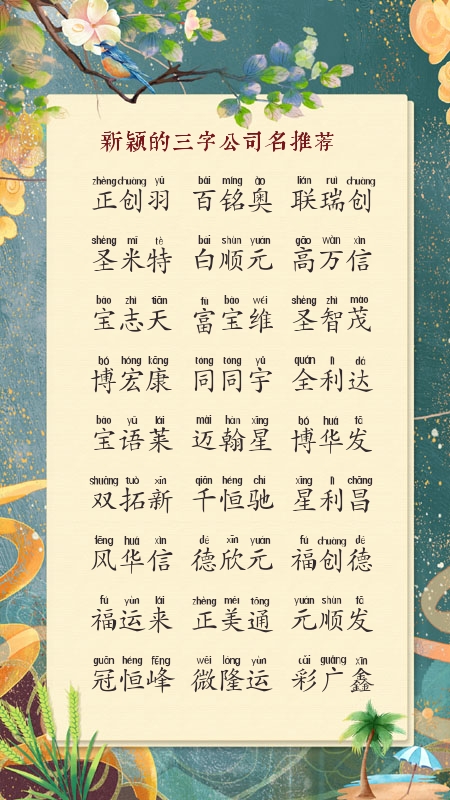 新颖的三字公司名推荐
zhèng chuàng yǔ bǎi míng ào lián ruì chuàng
正创羽 百铭奥 联瑞创
shèng mǐ tè bái shùn yuán gāo wàn xìn
圣米特 白顺元 高万信
bǎo zhì tiān fù bǎo wéi shèng zhì mào
宝志天 富宝维 圣智茂
bó hóng kāng tóng tóng yǔ quán lì dá
博宏康 同同宇 全利达
bǎo yǔ lái mài hàn xīng bó huá fā
宝语莱 迈翰星 博华发
shuāng tuò xīn qiān héng chí xīng lì chāng
双拓新 千恒驰 星利昌
fēng huá xìn dé xīn yuán fú chuàng dé
风华信 德欣元 福创德
fú yùn lái zhèng měi tōng yuán shùn fā
福运来 正美通 元顺发
guān héng fēng wēi lóng yùn cǎi guǎng xīn
冠恒峰 微隆运 彩广鑫